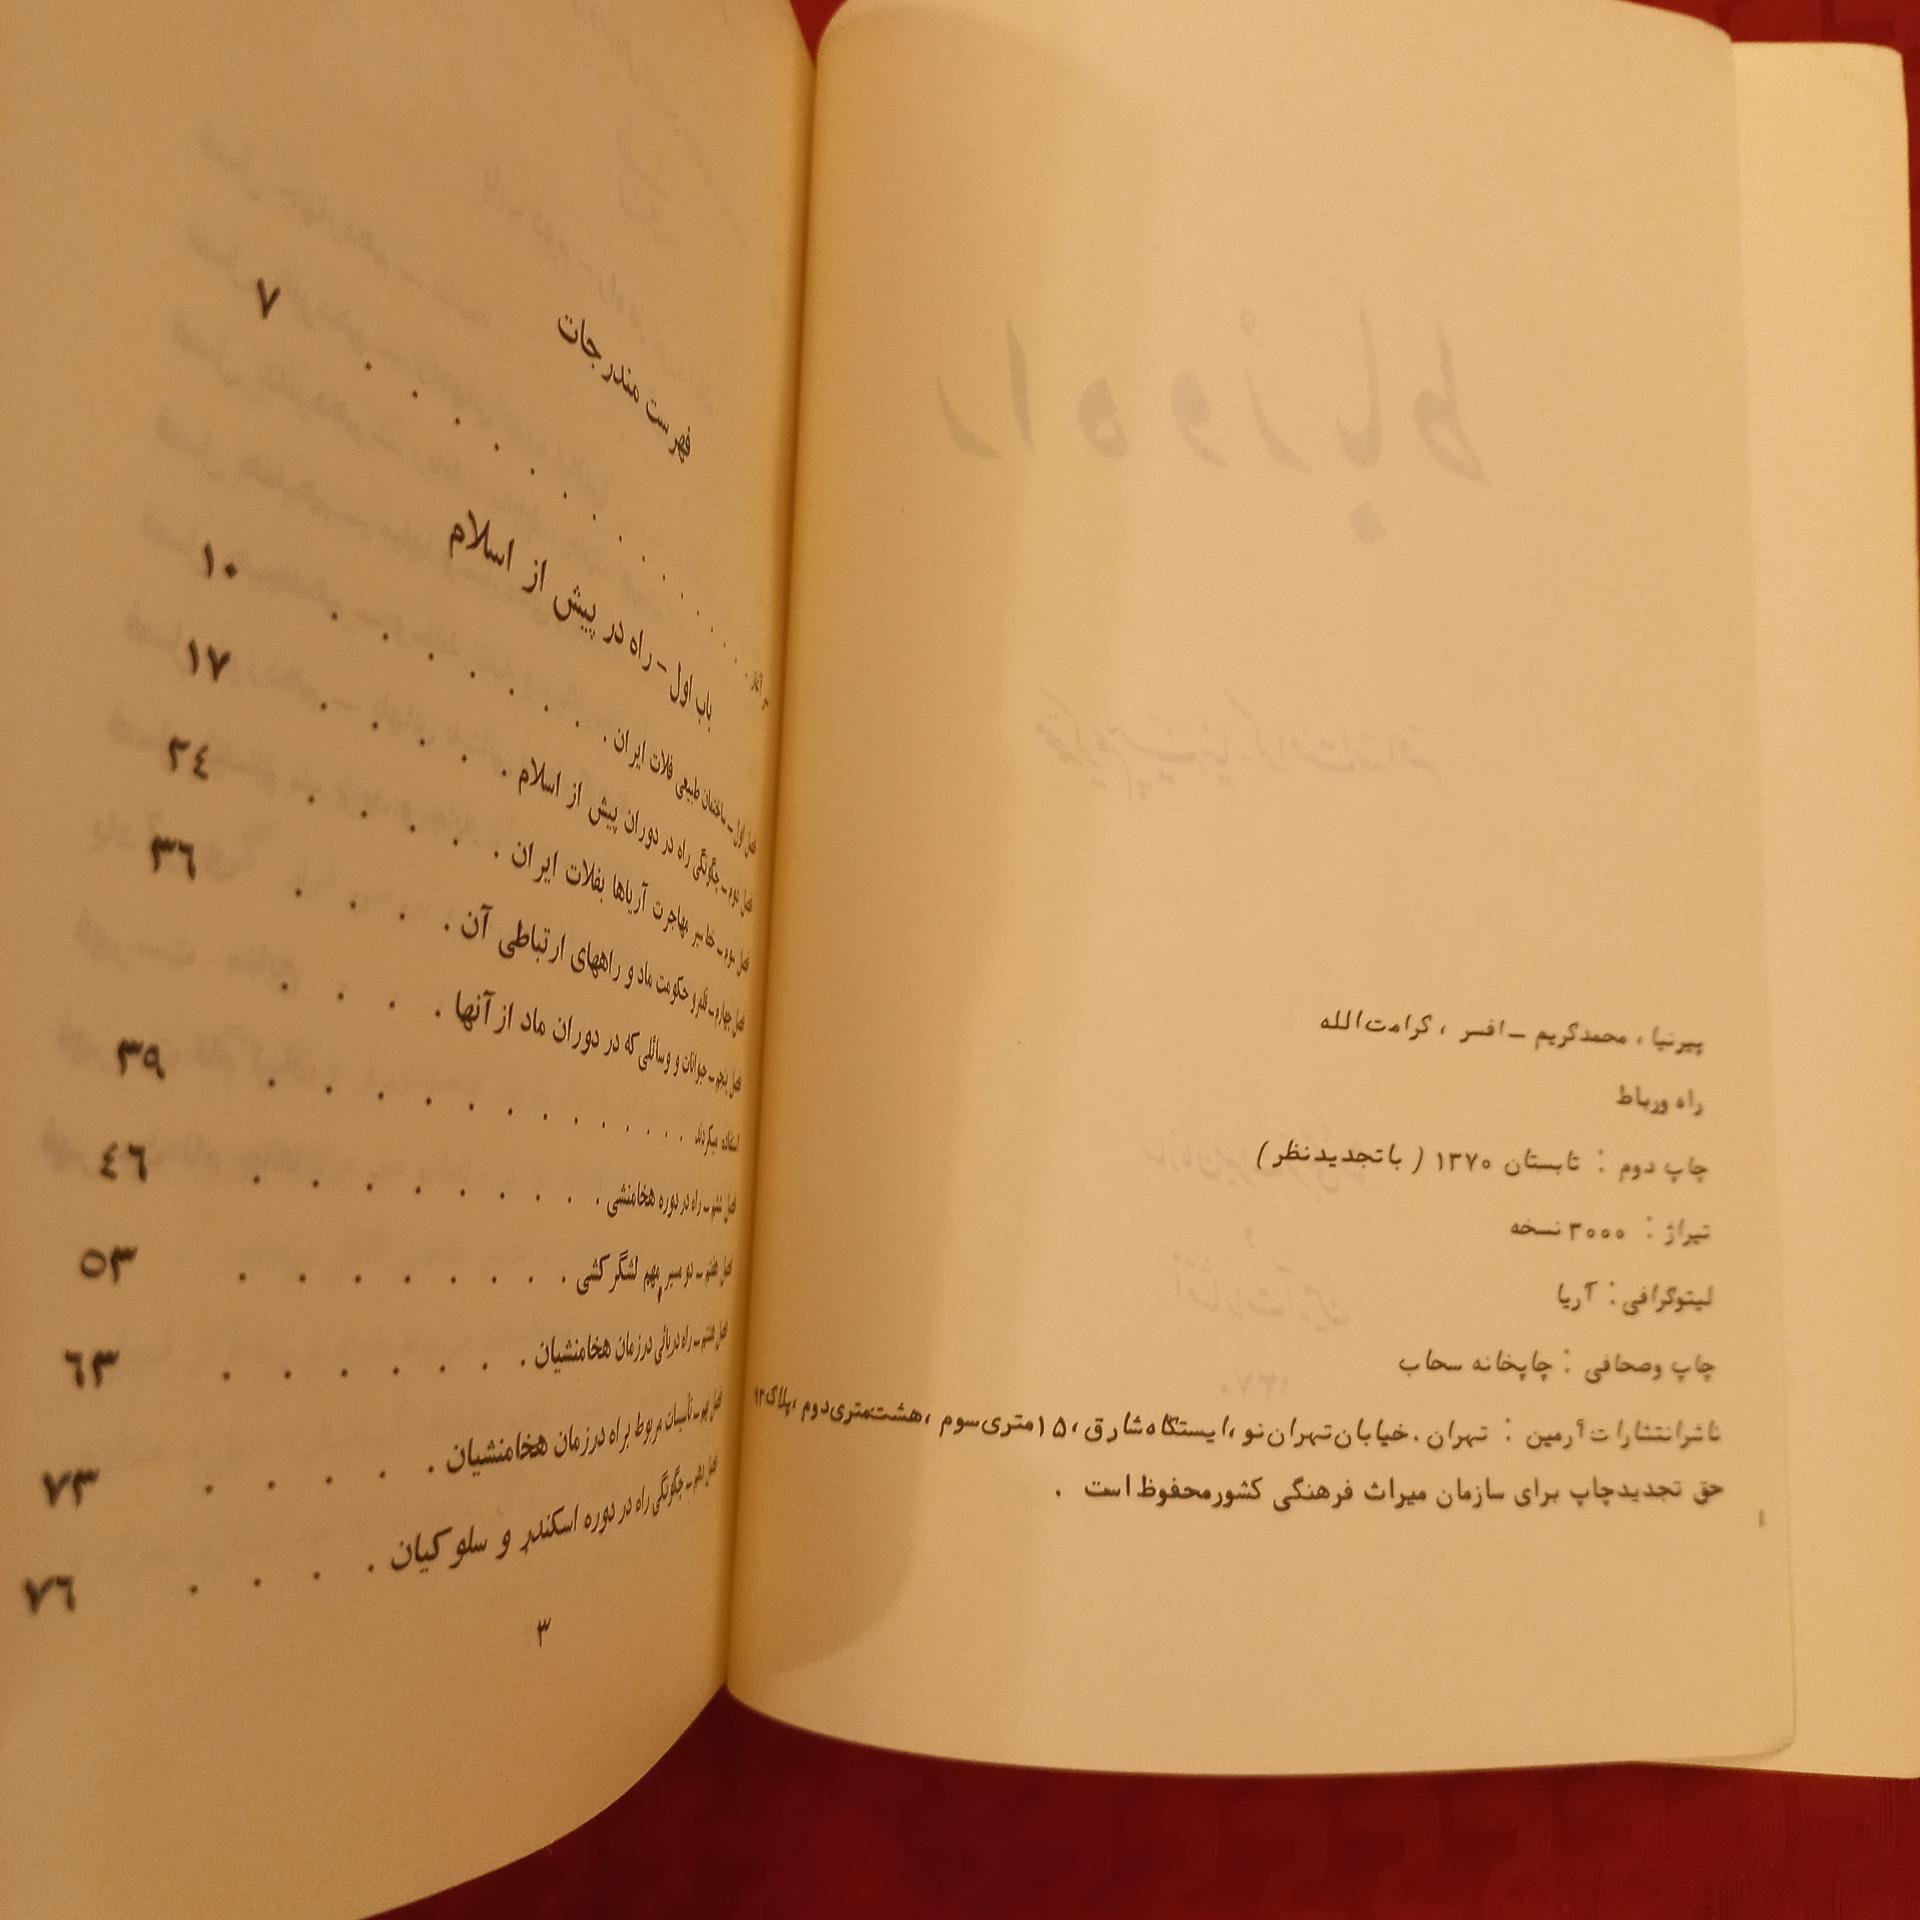 پیرنیا، محمدکریم – افسر، کرامت‌الله
راه ورباط
چاپ دوم : تابستان ۱۳۷۰ ( با تجدیدنظر )
تیراژ : ۳۰۰۰ نسخه
لیتوگرافی : آریا
چاپ وصحافی : چاپخانه سحاب
ناشرانتشارات آرمین : تهران . خیابان تهران نو ، ایستگاه شارق ، ۱۵ متری سوم ، هشت‌متری دوم ، پلاک ۹۲
حق تجدیدچاپ برای سازمان میراث فرهنگی کشورمحفوظ است .
فهرست مندرجات
۷
باب اول – راه در پیش از اسلام
فصل اول – ساختمان طبیعی فلات ایران . . . . . . ۱۰
فصل دوم – چگونگی راه در دوران پیش از اسلام . . . . . ۱۷
فصل سوم – خط سیر مهاجرت آریاها بفلات ایران . . . . . ۲٤
فصل چهارم – قلمرو حکومت ماد و راههای ارتباطی آن . . . . ۳٦
فصل پنجم – حیوانات و وسائلی که در دوران ماد از آنها . . . .
استفاده میکردند . . . . . . . . . . . ۳۹
فصل ششم – راه در دوره هخامنشی . . . . . . . . . ٤٦
فصل هفتم – دو مسیر مهم لشگر کشی . . . . . . . ۵۳
فصل هشتم – راه دریائی درزمان هخامنشیان . . . . . . . ٦۳
فصل نهم – تأسیسات مربوط براه درزمان هخامنشیان . . . . . ۷۳
فصل دهم – چگونگی راه در دوره اسکندر و سلوکیان . . . . ۷٦
۳